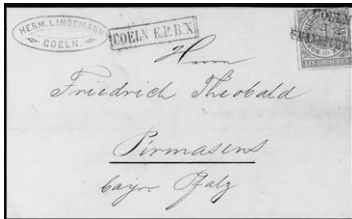 HERM. LINDEMANN
COELN.
COELN E.P.B.X
COELN
EIN GROSCHEN
Herrn
Friedrich Theobald
Pirmasens
bayr Pfalz